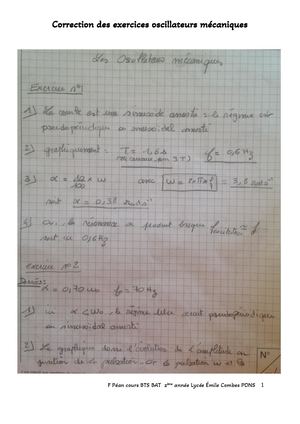 Correction des exercices oscillateurs mécaniques
Les Oscillateurs mécaniques
Exercice n°1
1) La courbe est une sinusoïde amortie : le régime est
pseudopériodique ou sinusoïdal amorti
2) graphiquement : T = 1,6 s f = 0,6 Hz
3) α = 10/100 × ω avec ω = 2×π×f = 3,8 rad s⁻¹
soit α = 0,38 rad s⁻¹
4) la résonance peut lorsque
soit ici 0,6 Hz
exercice n°2
Données :
α = 0,70 f₀ = 70 Hz
1) ici α < ω₀, le régime libre serait pseudopériodique
ou sinusoïdal amorti
2) Le graphique donne l'évolution de l'amplitude en
fonction de la pulsation. or la pulsation
N°
F Péan cours BTS BAT 2ème année Lycée Émile Combes PONS 1